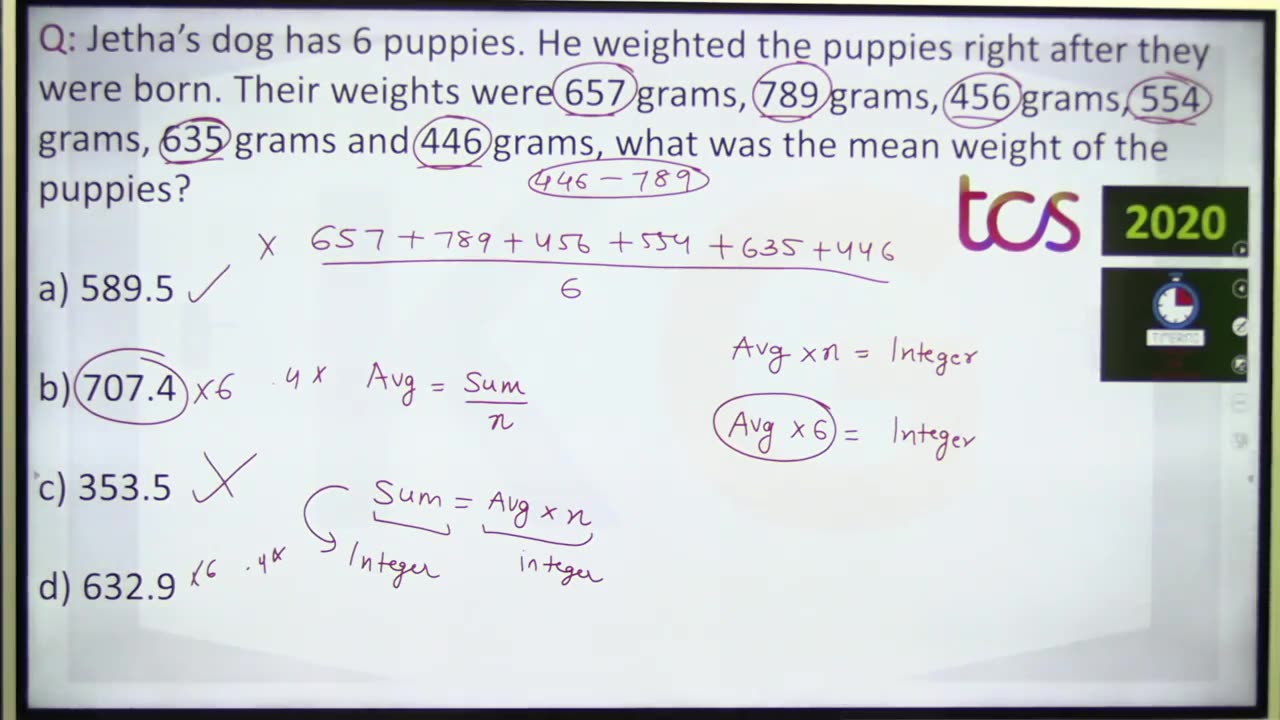 Q: Jetha's dog has 6 puppies. He weighted the puppies right after they
were born. Their weights were 657 grams, 789 grams, 456 grams, 554
grams, 635 grams and 446 grams, what was the mean weight of the
puppies?
446 - 789
tcs
2020
x 657 + 789 + 456 + 554 + 635 + 446
6
a) 589.5 ✓
Avg x n = Integer
b) 707.4 x 6 .4 x Avg = Sum
n
Avg x 6 = Integer
c) 353.5 X
Sum = Avg x n
Integer integer
d) 632.9 x 6 .4 x